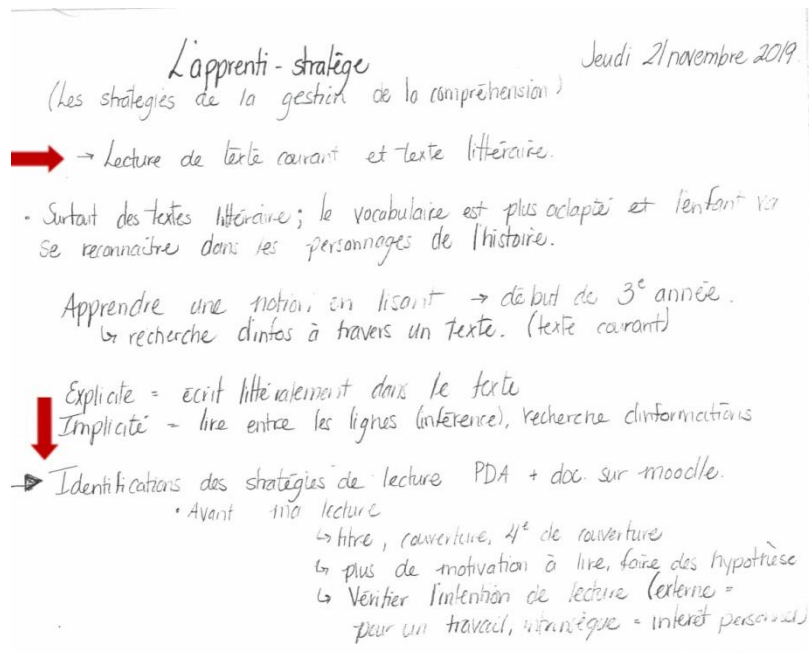 L'apprenti-stratège Jeudi 21 novembre 2019.
(Les stratégies de la gestion de la compréhension)
→ Lecture de texte courant et texte littéraire.
• Surtout des textes littéraire; le vocabulaire est plus adapté et l'enfant va
se reconnaître dans les personnages de l'histoire.
Apprendre une notion en lisant → début de 3e année.
↳ recherche d'infos à travers un texte. (texte courant)
Explicite = écrit littéralement dans le texte
Implicite = lire entre les lignes (inférence), recherche d'informations
Identifications des stratégies de lecture PDA + doc. sur moodle.
• Avant ma lecture
↳ titre, couverture, 4e de couverture
↳ plus de motivation à lire, faire des hypothèse
↳ Vérifier l'intention de lecture (externe =
pour un travail, intrinsèque = intérêt personnel)